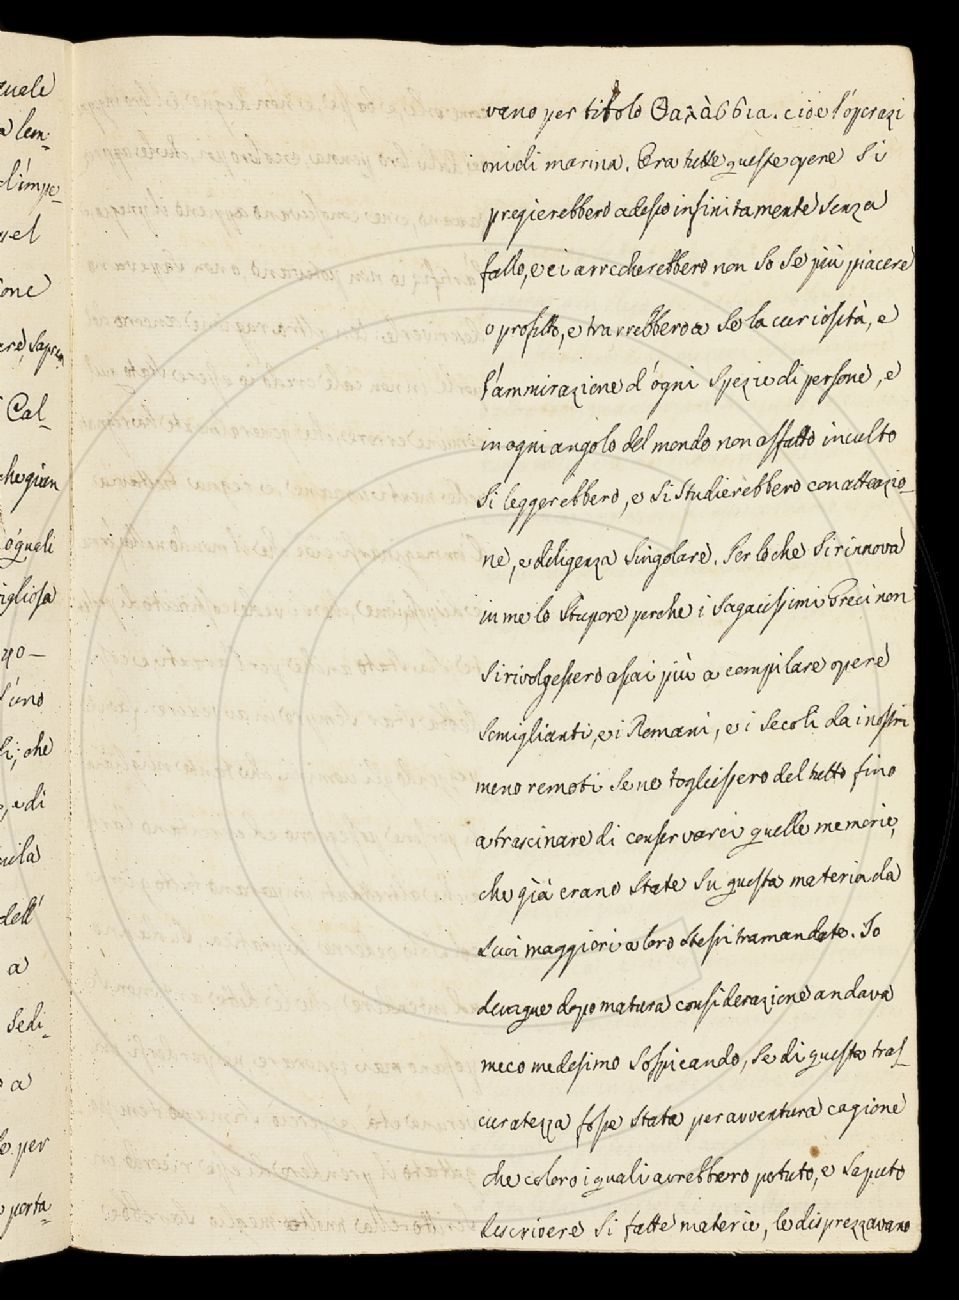 vano per titolo Θαλὰσσια. cioè l'operazi
oni di marina. Ora tutte queste opere si
pregierebbero adesso infinitamente senza
fallo, e ci arrecherebbero non so se più piacere
o profitto, e trarrebbero a se la curiosità, e
l'ammirazione d'ogni spezie di persone, e
in ogni angolo del mondo non affatto inculto
si leggerebbero, e si studierebbero con attenzio-
ne, e diligenza singolare. Per lo che si rinnova
in me lo stupore perche i sagacissimi Greci non
si rivolgessero assai più a compilare opere
semiglianti, e i Romani, e i secoli da i nostri
meno remoti se ne togliessero del tutto fino
a trascinare di conservarci quelle memorie,
che già erano state su questa materia da
suoi maggiori a loro stessi tramandate. Io
dunque dopo matura considerazione andava
meco medesimo sospicando, se di questa tras-
curatezza fosse stata per avventura cagione
che coloro i quali avrebbero potuto, e saputo
descrivere si fatte materie, le disprezzavano
quale
a lem-
d'impe-
uel
one
Cal-
che gian
o quali
igliosa
uno
che
e di
dell'
a
sedi-
a
per
porta-